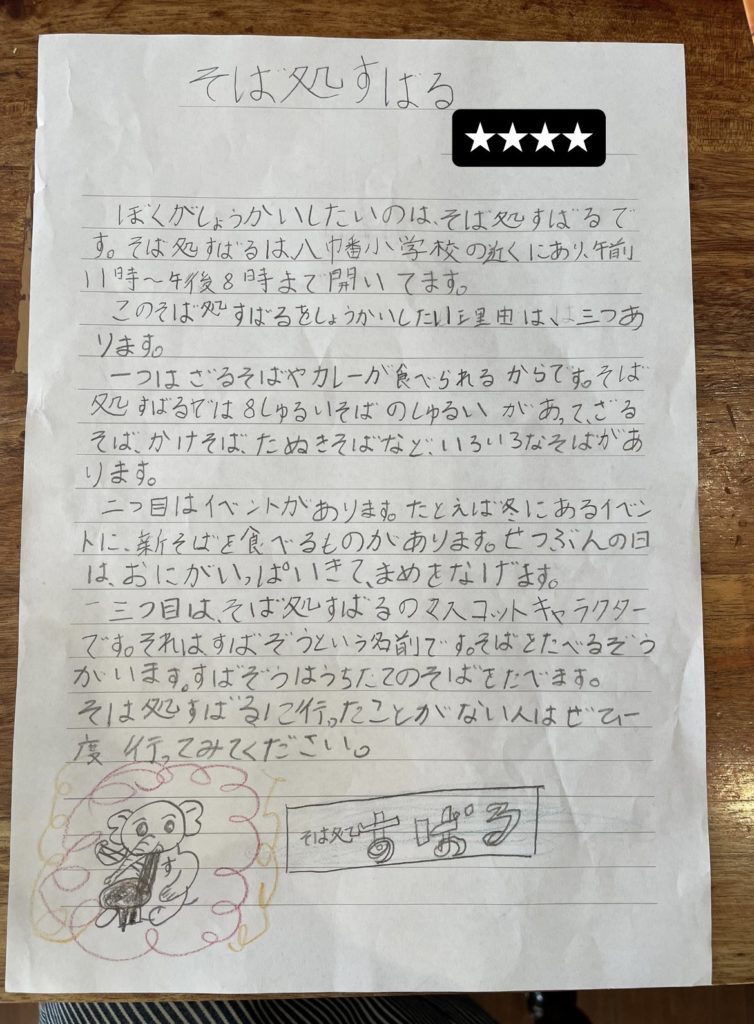 そば処すばる
★★★★
ぼくがしょうかいしたいのは、そば処すばるで
す。そば処すばるは八幡小学校の近くにあり、午前
11時～午後8時まで開いてます。
このそば処すばるをしょうかいしたい理由は、は三つあ
ります。
一つはざるそばやカレーが食べられるからです。そば
処すばるでは8しゅるいそばのしゅるいがあって、ざる
そば、かけそば、たぬきそばなど、いろいろなそばがあ
ります。
二つ目はイベントがあります。たとえば冬にあるイベン
トに、新そばを食べるものがあります。せつぶんの日
は、おにがいっぱいきて、まめをなげます。
三つ目は、そば処すばるのマスコットキャラクター
です。それはすばぞうという名前です。そばをたべるぞう
がいます。すばぞうはうちたてのそばをたべます。
そは処すばるに行ったことがない人はぜひ一
度行ってみてください。
す
そば処 すばる